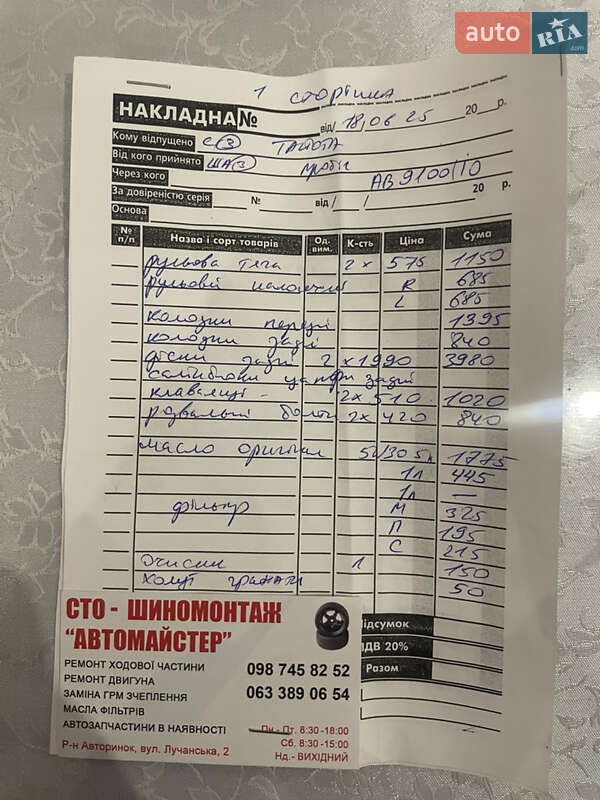 auto RIA .com
1 сторінка
НАКЛАДНА №
від 18,06 25 20 р.
Кому відпущено с ③ Тайота
Від кого прийнято ША③ пробіг
Через кого АВ9100ІО
За довіреністю серія № від / / 20 р.
Основа
№ п/п Назва і сорт товарів Од. вим. К-сть Ціна Сума
рульова тяга 2х 575 1150
рульовий R 685
L 685
колодки перед 1395
колодки задні 840
діски задні 2 х1990 3980
сайлентблоки задні
2х510. 1020
розвальні болти 2х 420 840
масло оригінал 5w/30 5л 1775
1л 445
1л —
фільтр М 325
П 195
С 215
Очисник 1 150
хомут гранати 50
Підсумок
ПДВ 20%
Разом
СТО - ШИНОМОНТАЖ
"АВТОМАЙСТЕР"
РЕМОНТ ХОДОВОЇ ЧАСТИНИ
РЕМОНТ ДВИГУНА
ЗАМІНА ГРМ ЗЧЕПЛЕННЯ
МАСЛА ФІЛЬТРІВ
АВТОЗАПЧАСТИНИ В НАЯВНОСТІ
098 745 82 52
063 389 06 54
Пн.- Пт. 8:30 -18:00
Сб. 8:30 -15:00
Нд.- ВИХІДНИЙ
Р-н Авторинок, вул. Лучанська, 2